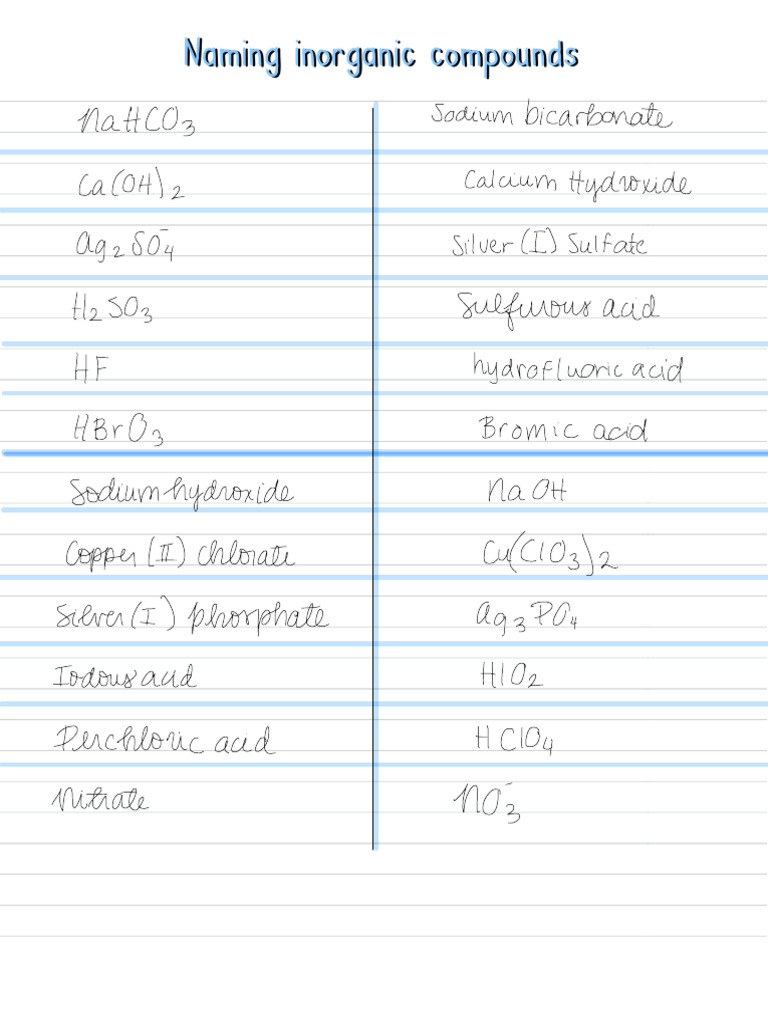 Naming inorganic compounds
NaHCO3 Sodium bicarbonate
Ca(OH)2 Calcium Hydroxide
Ag2SO4⁻ Silver (I) Sulfate
H2SO3 Sulfurous acid
HF hydrofluoric acid
HBrO3 Bromic acid
Sodium hydroxide NaOH
Copper (II) chlorate Cu(ClO3)2
Silver (I) phosphate Ag3PO4
Iodous acid HIO2
Perchloric acid HClO4
Nitrate NO3⁻